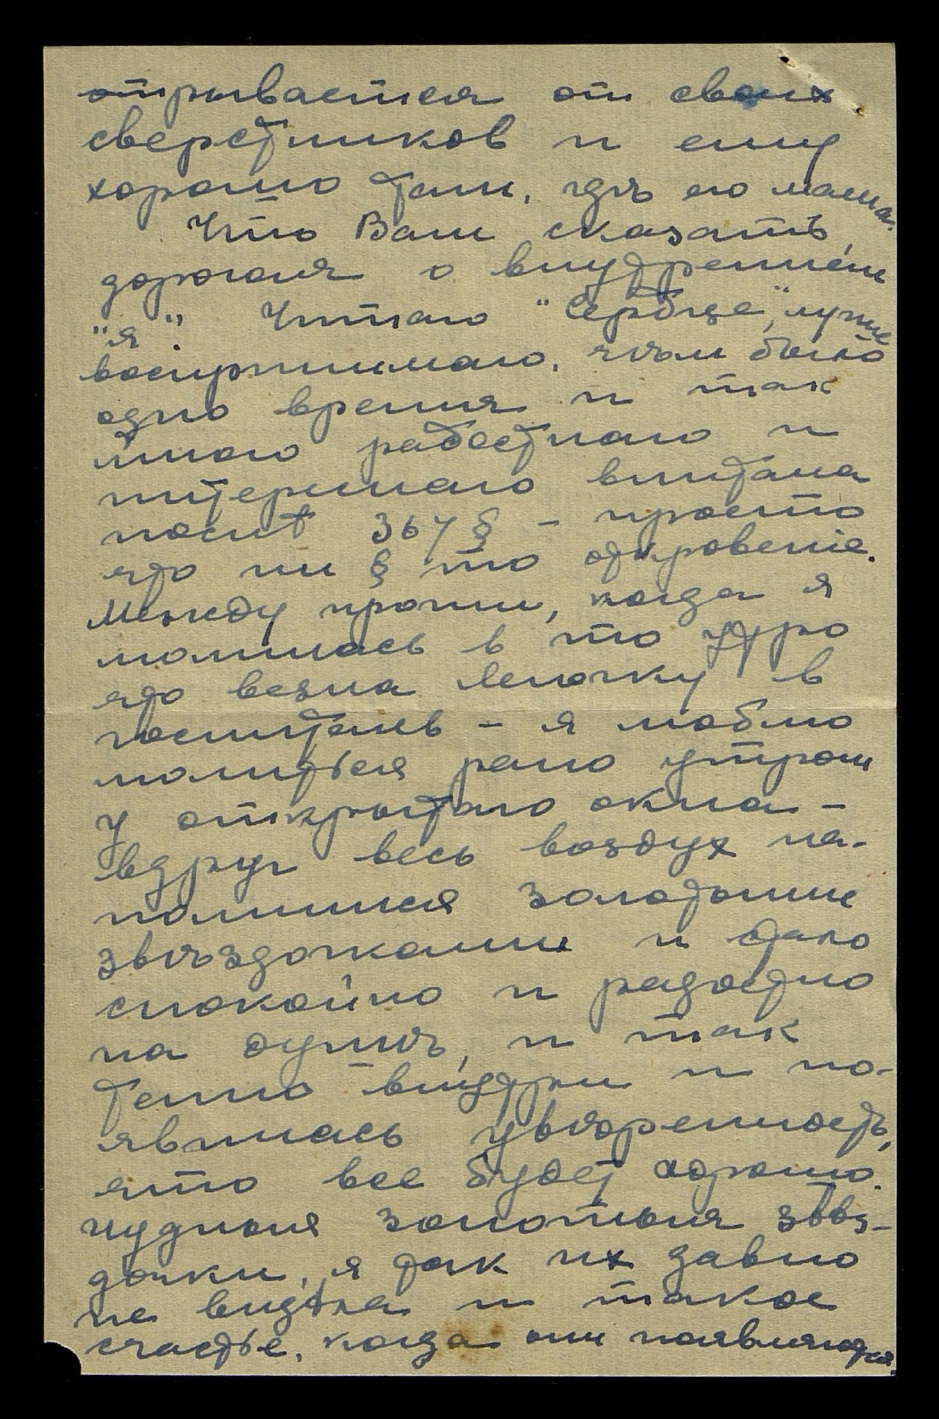 отрывается от своих
сверстников и ему
хорошо там, гдѣ его мама.
Что Вам сказать,
дорогая о внутреннем
"я". Читаю "Сердце", лучше
воспринимаю, чѣм было
одно время и так
много радостнаго и
интереснаго
послѣ 367 § – просто
что ни § то откровеніе.
Между прочим, когда я
молилась в то утро
что везла Леночку в
госпиталь – я люблю
молиться рано утром
у открытаго окна –
вдруг весь воздух на-
полнился золотыми
звѣздочками и стало
спокойно и радостно
на душѣ, и так
тепло внутри и по-
явилась увѣренность,
что все будет хорошо.
Чудныя золотыя звѣз-
дочки, я так их давно
не видѣла и такое
счастье, когда они появляются.